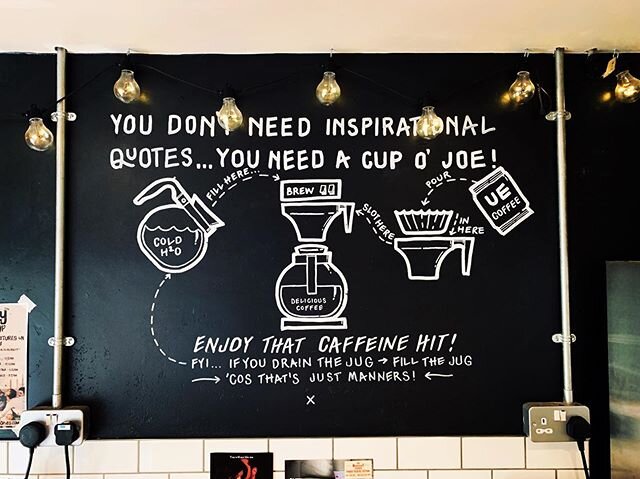 YOU DON'T NEED INSPIRATIONAL
QUOTES... YOU NEED A CUP O' JOE!
FILL HERE...
BREW
SLOT HERE
POUR
IN
HERE
UE
COFFEE
COLD
H2O
DELICIOUS
COFFEE
ENJOY THAT CAFFEINE HIT!
FYI... IF YOU DRAIN THE JUG → FILL THE JUG
→ 'COS THAT'S JUST MANNERS! ←
X